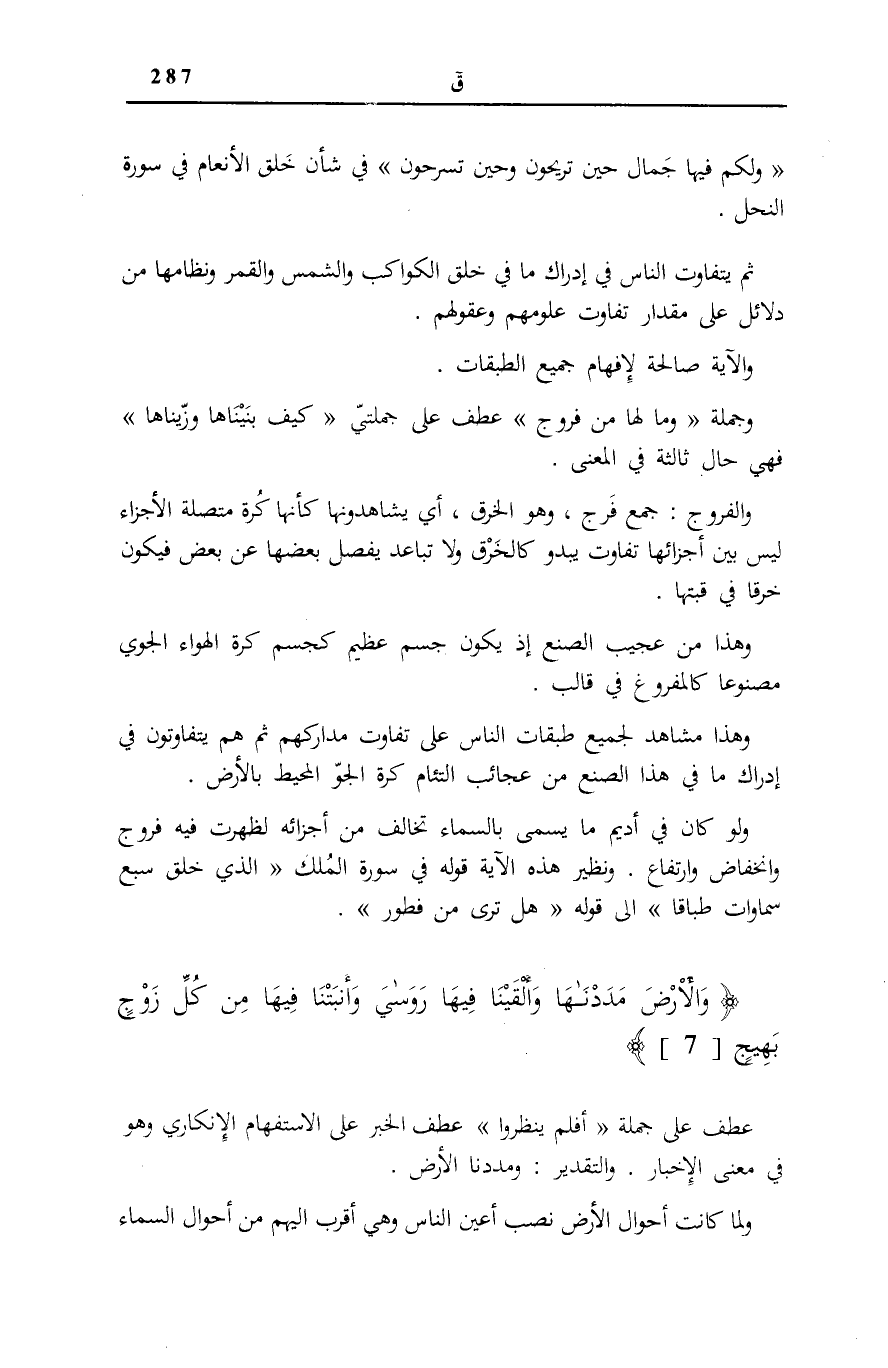 287
ق
« ولكم فيها جَمال حين تريحون وحين تسرحون » في شأن خَلق الأنعام في سورة
النحل .
ثم يتفاوت الناس في إدراك ما في خلق الكواكب والشمس والقمر ونظامها من
دلائل على مقدار تفاوت علومهم وعقولهم .
والآية صالحة لإفهام جميع الطبقات .
وجملة « وما لها من فروج » عطف على جملتيّ « كيف بنَيْنَاها وزّيناها »
فهي حال ثالثة في المعنى .
والفروج : جمع فَرج ، وهو الخرق ، أي يشاهدونها كأنها كُرة متصلة الأجزاء
ليس بين أجزائها تفاوت يبدو كالخَرْق ولا تباعد يفصل بعضها عن بعض فيكون
خرقا في قبتها .
وهذا من عجيب الصنع إذ يكون جسم عظيم كجسم كرة الهواء الجوي
مصنوعا كالمفروغ في قالب .
وهذا مشاهد لجميع طبقات الناس على تفاوت مداركهم ثم هم يتفاوتون في
إدراك ما في هذا الصنع من عجائب التئام كرة الجوّ المحيط بالأرض .
ولو كان في أديم ما يسمى بالسماء تخالف من أجزائه لظهرت فيه فروج
وانخفاض وارتفاع . ونظير هذه الآية قوله في سورة المُلك « الذي خلق سبع
سماوات طباقا » الى قوله « هل ترى من فطور » .
﴿ وَالْأَرْضَ مَدَدْنَـٰهَا وَأَلْقَيْنَا فِيهَا رَوَسِٰيَ وَأَنبَتْنَا فِيهَا مِن كُلِّ زَوْجٍ
بَهِيجٍ [ 7 ] ﴾
عطف على جملة « أفلم ينظروا » عطف الخبر على الاستفهام الإنكاري وهو
في معنى الإخبار . والتقدير : ومددنا الأرض .
ولما كانت أحوال الأرض نصب أعين الناس وهي أقرب اليهم من أحوال السماء